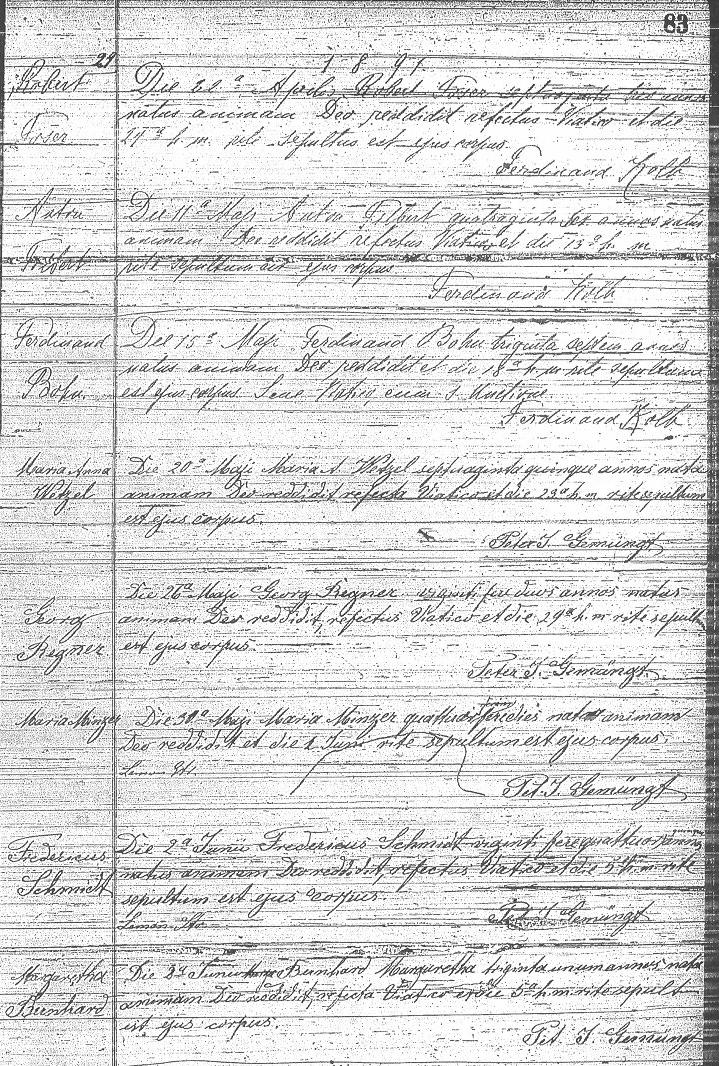 83
29
1891
Robert
Die 20ª Aprilis Robert
natus animam Deo reddidit refectus Viatico et die
h. m. rite sepultus est ejus corpus.
Ferdinand Kolb
Anton
Die 11ª Maji Anton Filbert quatraginta sex annos natus
animam Deo reddidit refectus Viatico et die 13ª h. m.
Filbert
rite sepultum est ejus corpus
Ferdinand Kolb
Ferdinand
Die 15ª Maji Ferdinand Bohn triginta septem annos
natus animam Deo reddidit et die 18ª h. m. rite sepultum
Bohn.
est ejus corpus. Sene Viatico, cum S. Unctione.
Ferdinand Kolb
Maria Anna
Wetzel
Die 20ª Maji Maria A. Wetzel septuaginta quinque annos nata
animam Deo reddidit refecta Viatico et die 23ª h. m. rite sepultum
est ejus corpus.
Peter J. Gemüngt
Georg
Regner
Die 26ª Maji Georg Regner viginti fere duos annos natus
animam Deo reddidit, refectus Viatico et die 29ª h. m. rite sepult
est ejus corpus.
Peter J. Gemüngt
Maria Minzer
Die 31ª Maji Maria Minzer quattuor fere dies nata animam
Deo reddidit et die 1 Juni rite sepultum est ejus corpus.
Lemon Str.
Pet. J. Gemüngt
Fredericus
Schmidt
Die 2ª Junii Fredericus Schmidt viginti fere quattuor annos
natus animam Deo reddidit, refectus Viatico et die 5ª h. m. rite
sepultum est ejus corpus.
Lemon Str.
Pet. J. Gemüngt
Margaretha
Burnhard
Die 3ª Junii Burnhard Margaretha triginta unum annos nata
animam Deo reddidit, refecta Viatico et die 5ª h. m. rite sepult
est ejus corpus.
Pet. J. Gemüngt